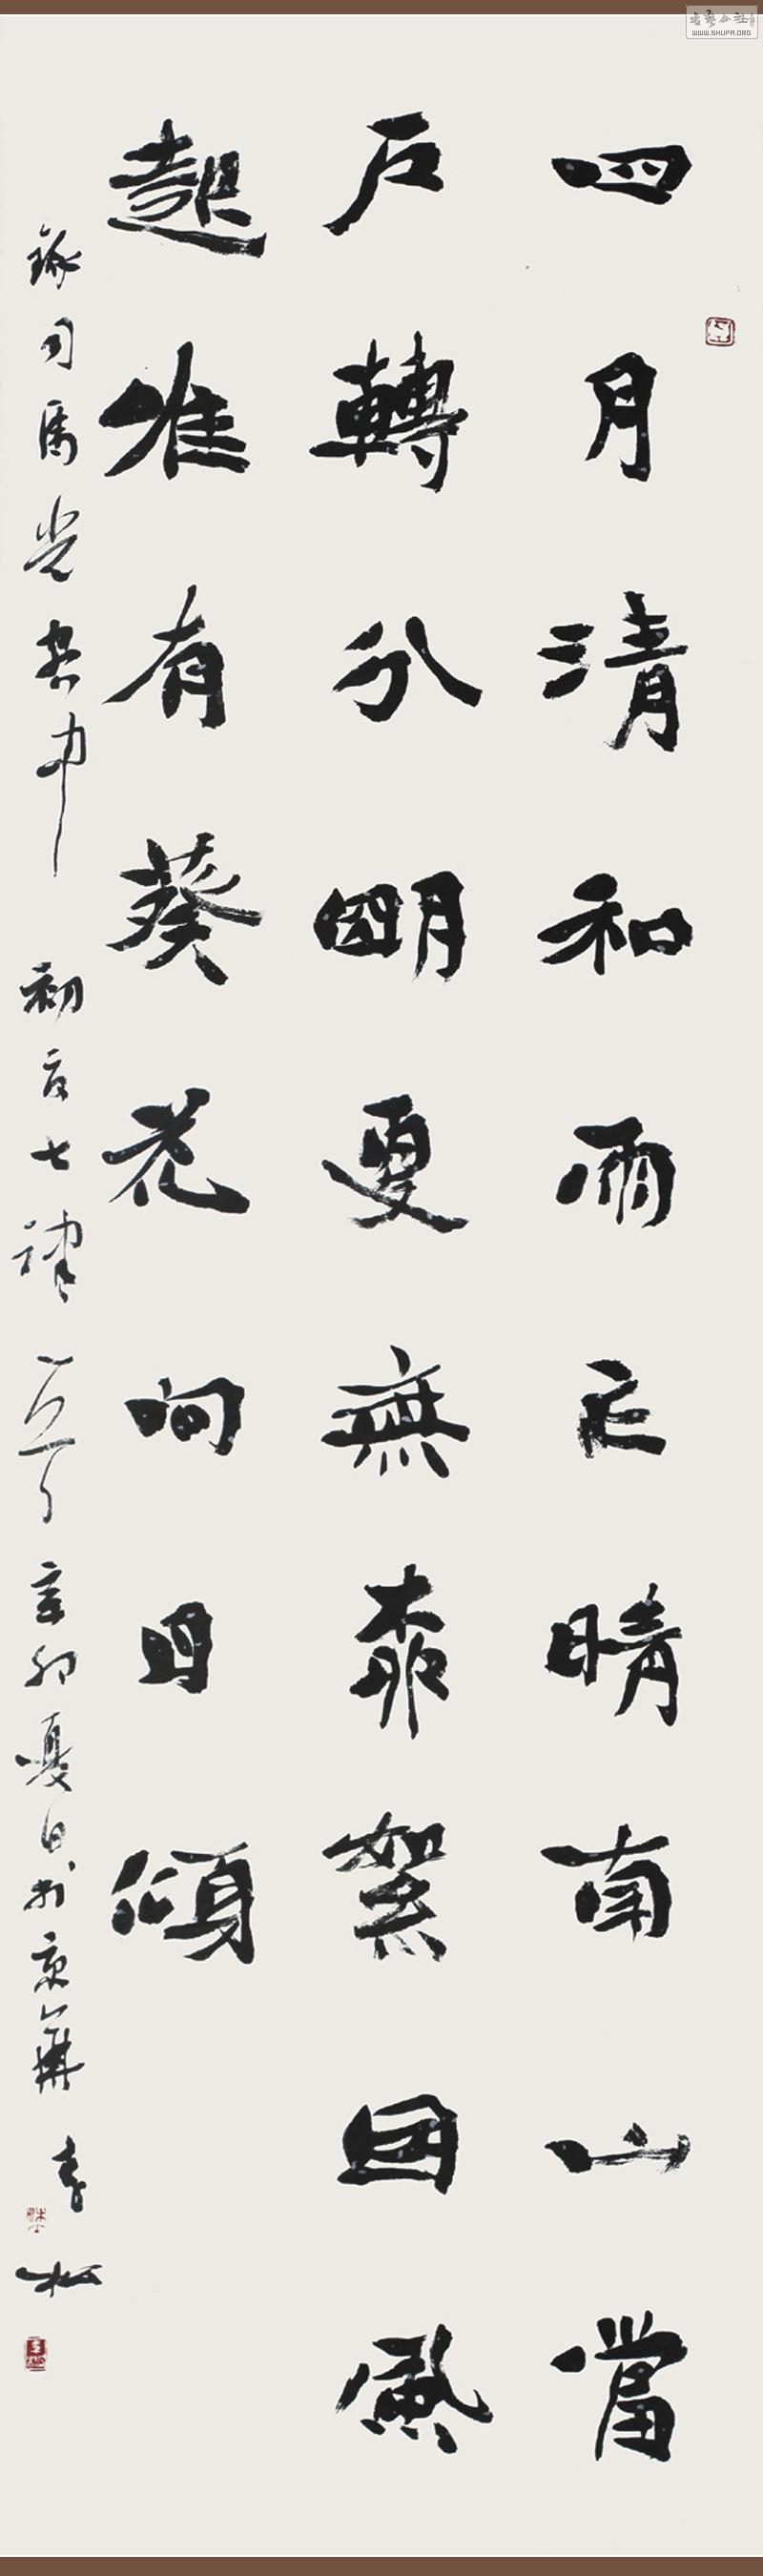 四月清和雨正晴南山當
戶轉分明更無柳絮因風
起唯有葵花向日傾
錄司馬光客中初夏七律一首辛卯夏日於京華青松
WWW.SHUFA.ORG